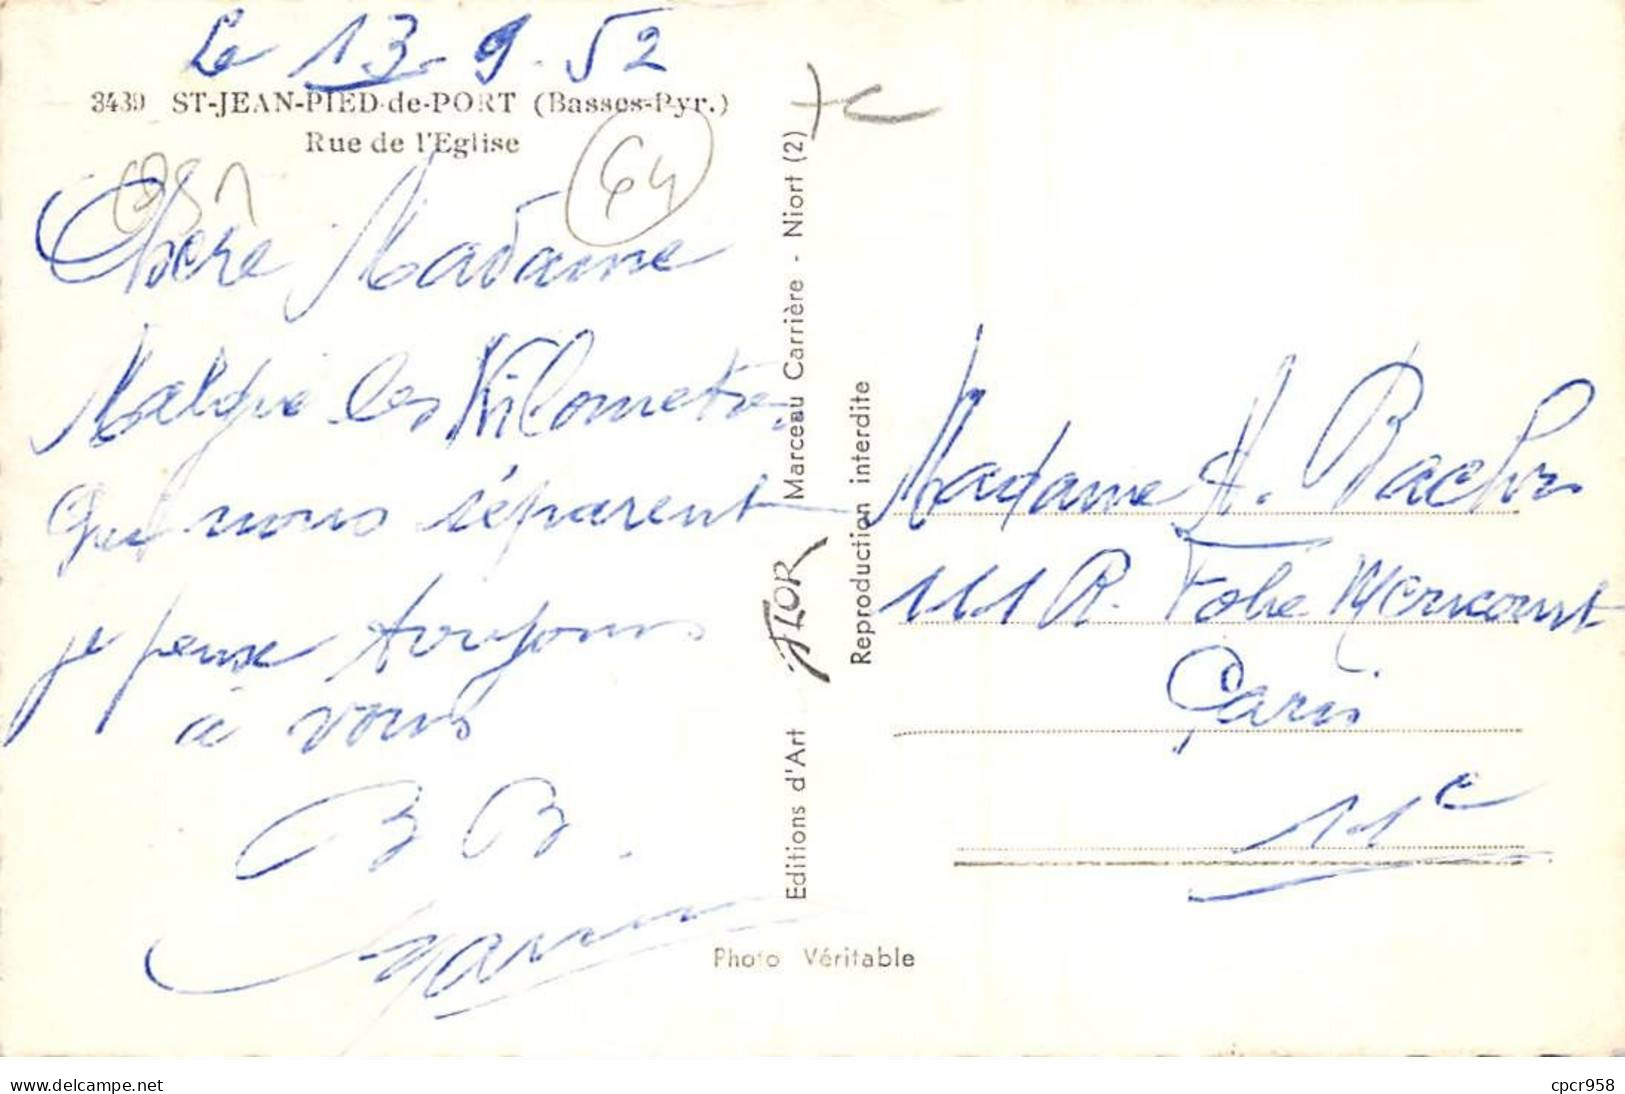 Le 13-9-52
3439 ST-JEAN-PIED-de-PORT (Basses-Pyr.)
Rue de l'Eglise
64
Chère Madame
Malgré les Kilometres
qui nous séparent
je pense toujours
à vous
B B.
Editions d'Art JLOR Marceau Carrière - Niort (2)
Reproduction interdite
Photo Véritable
Madame A.
111 R. Folie Mericourt
Paris
11e
www.delcampe.net
cpcr958